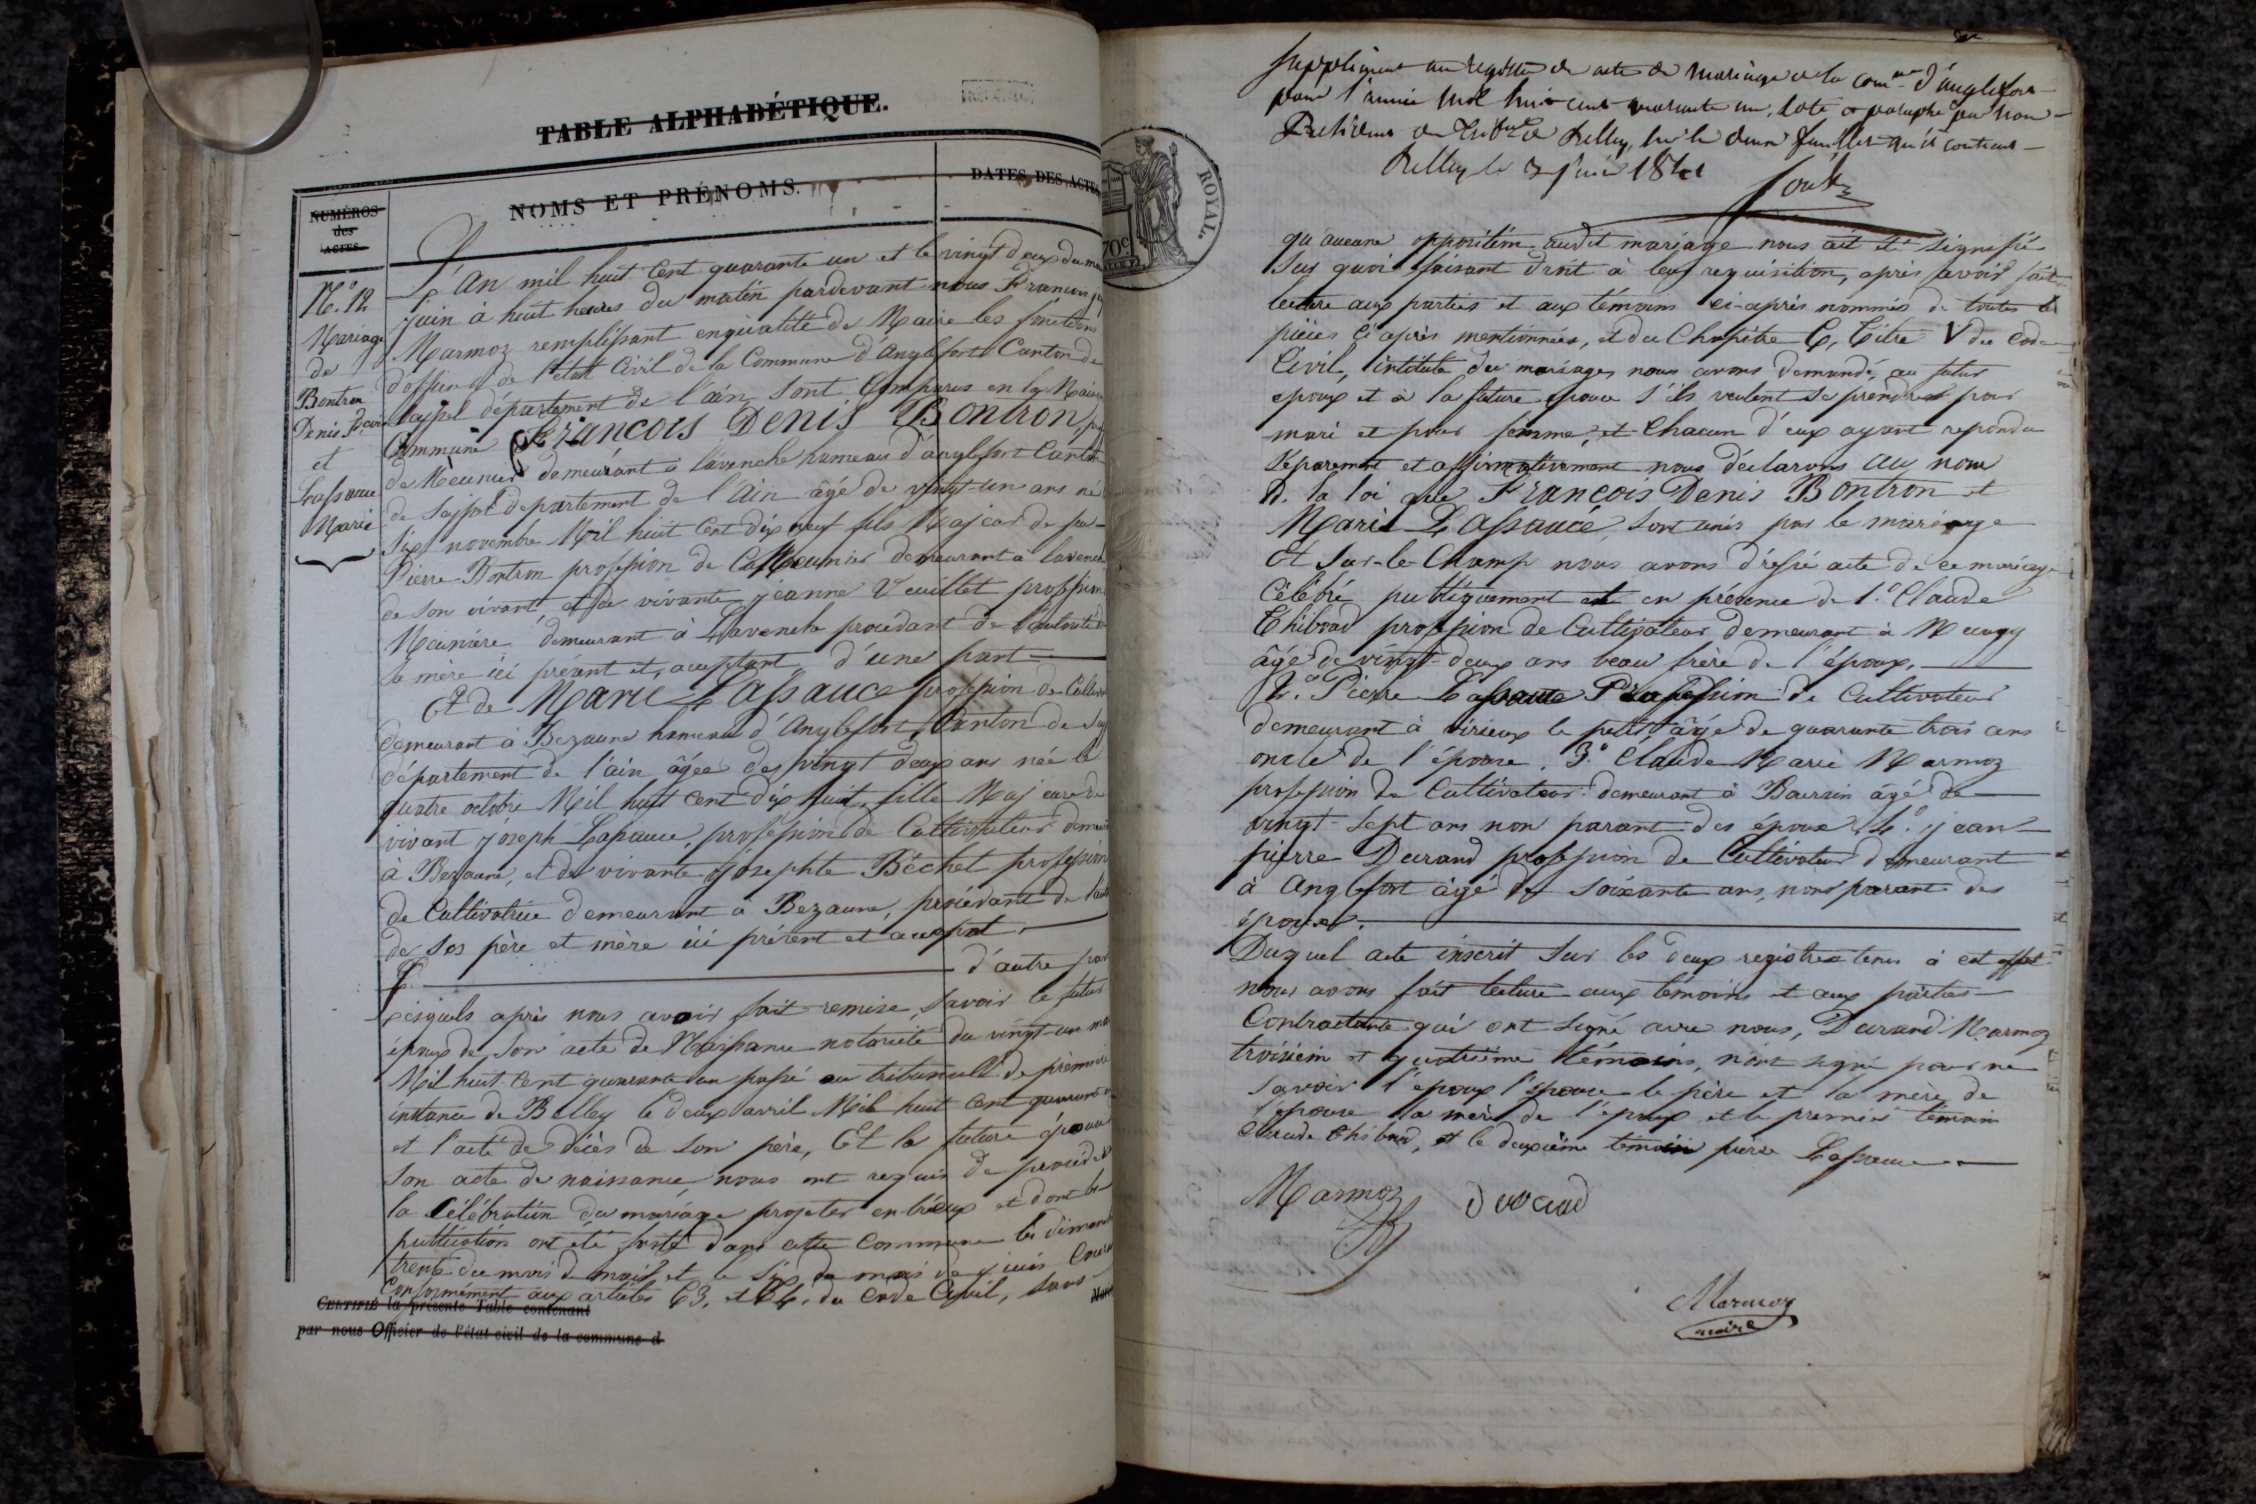 TABLE ALPHABÉTIQUE.
NUMÉROS
des
ACTES
NOMS ET PRÉNOMS.
DATES DES ACTES
N.º 12
Mariage
de
Bontron
Denis
et
Lassauce
Marie
L'An mil huit Cent quarante un et le vingt deux du
juin à huit heures du matin pardevant nous François
Marmoz remplissant enqualité de Maire les fonctions
d'officier de l'état Civil de la Commune d'Anglefort Canton de
département de l'ain Sont Comparus en la Mairie
Commune François Denis Bontron
de Meunier demeurant à lavenche hameau d'anglefort Canton
de département de l'Ain âgé de vingt-un ans né
Six novembre Mil huit Cent dix neuf fils Majeur de
Pierre Bontron profession de Meunier demeurant à
de son vivant, et de vivante jeanne Vuillet profession
Meunière demeurant à Lavenche procedant de
Sa mère ici présent et acceptant d'une part
Et de Marie Lassauce profession de
demeurant à Bezaune hameau d'Anglefort, Canton de
département de l'ain âgée de vingt deux ans née le
quatre octobre Mil huit Cent dix huit, fille Majeure de
vivant joseph Lassauce, profession de Cultivateur
à Bezaune, et de vivante josephte Béchet profession
de Cultivatrice demeurant à Bezaune, procédant de
de ses père et mère ici présent et
d'autre part
Lesquels après nous avoir fait remise, Savoir le futur
époux de Son acte de notoriété du vingt un
Mil huit Cent quarante un passé au tribunall de première
instance de Belley le deux avril Mil huit Cent quarante
et l'acte de décès de Son père, Et la future épouse
Son acte de naissance nous ont requis de procéder
la Célébration du mariage projeter entreux et dont les
publications ont été faite dans cette Commune les dimanche
trente du mois de mai et le Six du mois de juin
Conformément aux articles 63, et 64, du Code Civil, Sans
CERTIFIÉ la présente Table contenant
par nous Officier de l'état civil de la commune d
ROYAL.
70c
Supplément au registre de actes de Mariage de la comne d'anglefort
pour l'année Mil huit cent quarante un, Coté et paraphé par nous
Président du de Belley, qu'il contient
Belley le 1841
qu'aucune opposition audit mariage nous ait été Signifiée
Sur quoi faisant droit à leur requisition, après avoir fait
lecture aux parties et aux témoins ci-après nommés de toutes les
pièces Ci après mentionnées, et du Chapitre 6, titre V du Code
Civil, intitulé du mariage nous avons demandé, au futur
epoux et à la future epouse S'ils veulent Se prendre pour
mari et pour femme, et Chacun d'eux ayant repondu
Séparement et affirmativement nous déclarons au nom
D. la loi que François Denis Bontron et
Marie Lassauce, Sont unis par le mariage
Et Sur-le-Champ nous avons dressé acte de ce mariage
Célébré publiquement et en présence de 1.º Claude
Thiboud profession de Cultivateur demeurant à
âgé de vingt-deux ans beau frère de l'époux,
2.º Pierre Lassauce Profession de Cultivateur
demeurant à virieux le petit âgé de quarante trois ans
oncle de l'épouse. 3.º Claude Marie Marmoz
profession de Cultivateur demeurant à âgé de
vingt-sept ans non parant des époux. 4.º jean
pierre Durand profession de Cultivateur demeurant
à Anglefort âgé de Soixante ans, non parant des
époux.
Duquel acte inscrit Sur les deux registres tenus à cet effet
nous avons fait lecture aux témoins et aux parties
Contractante qui ont Signé avec nous, Durand Marmoz
troisiem et quatrième témoins, n'ont signé pour ne
Savoir l'epoux l'epouse le père et la mère de
l'epouse la mère de l'epoux et le premier témoin
Claude Thiboud, et le deuxième témoin pierre Lassauce
Marmoz
Durand
Marmoz
maire